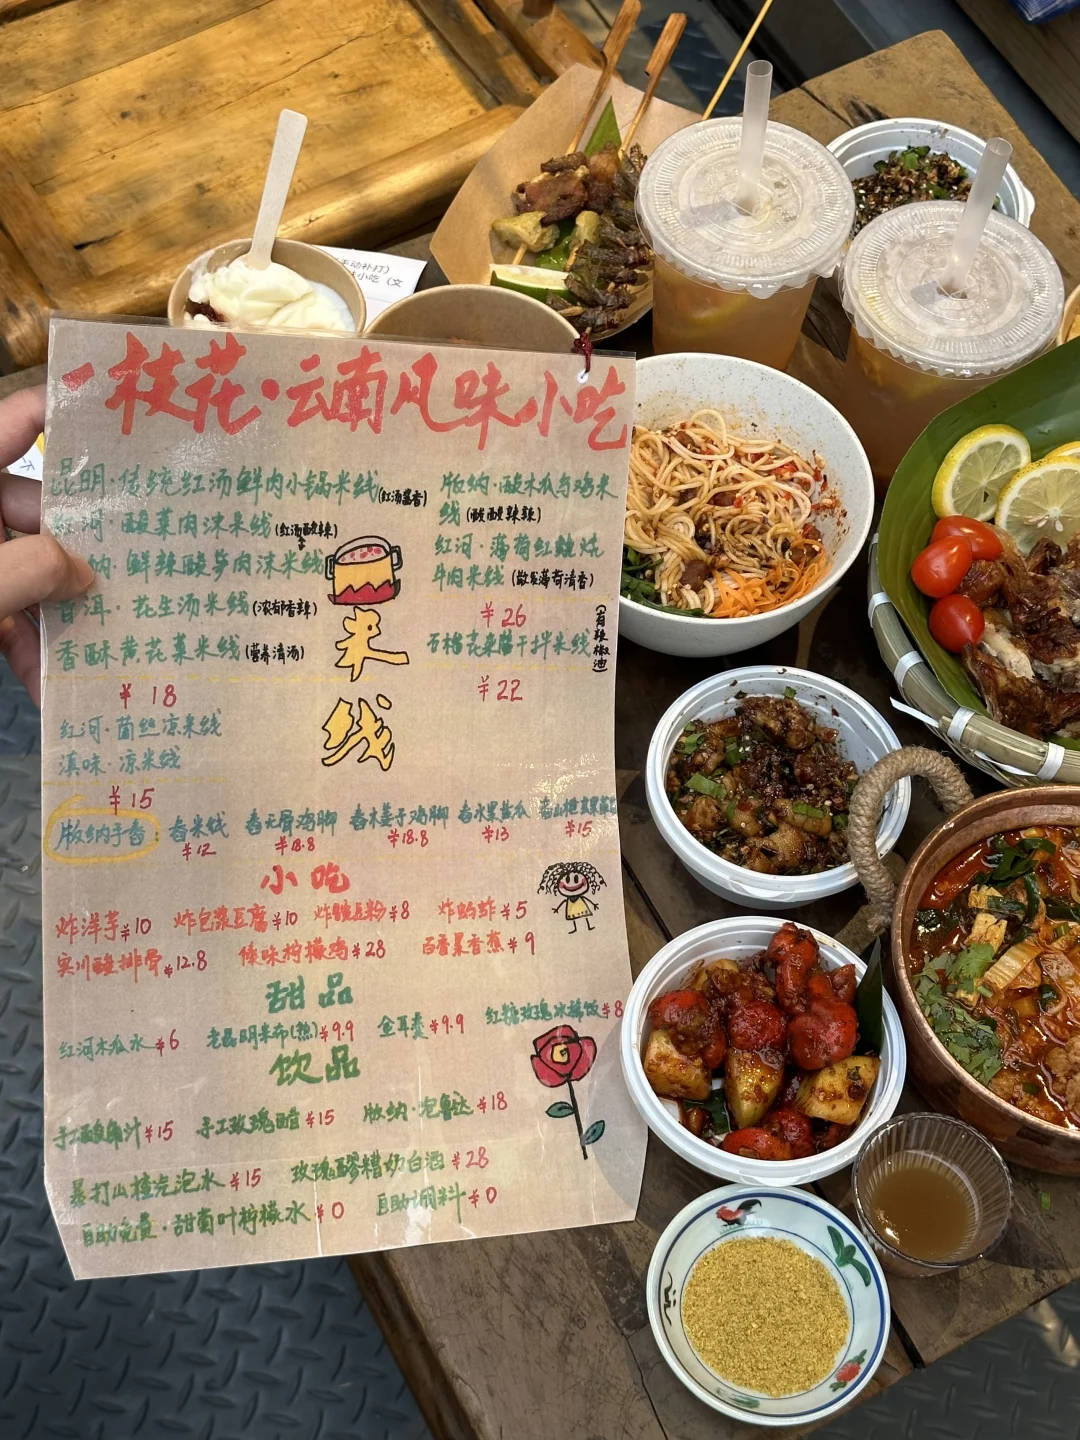 一枝花·云南风味小吃
昆明·传统红汤鲜肉小锅米线(红汤酱香)
红河·酸菜肉沫米线(红汤酸辣)
纳·鲜辣酸笋肉沫米线
普洱·花生汤米线(浓郁香辣)
香酥黄花菜米线(营养清汤)
¥18
版纳·酸木瓜乌鸡米
线(酸酸辣辣)
红河·薄荷红烧
牛肉米线(散发薄荷清香)
¥26
石榴花来腊干拌米线(有辣椒油)
¥22
米
线
红河·菌丝凉米线
滇味·凉米线
¥15
版纳手舂:
舂米线
¥12
舂无骨鸡脚
¥18.8
舂木姜子鸡脚
¥18.8
舂水果黄瓜
¥13
¥15
小吃
炸洋芋¥10 炸包浆豆腐¥10 炸豌豆粉¥8 炸蚂蚱¥5
宾川酸排骨¥12.8 傣味柠檬鸡¥28 百香果香蕉¥9
甜品
红河木瓜水¥6 老昆明米布(热)¥9.9 金耳羹¥9.9 红糖玫瑰冰稀饭¥8
饮品
手工酸角汁¥15 手工玫瑰醋¥15 版纳·泡鲁达¥18
暴打山楂汽泡水¥15 玫瑰醪糟奶白酒¥28
自助免费·甜菊叶柠檬水¥0 自助调料¥0
手动补打)
味小吃(文